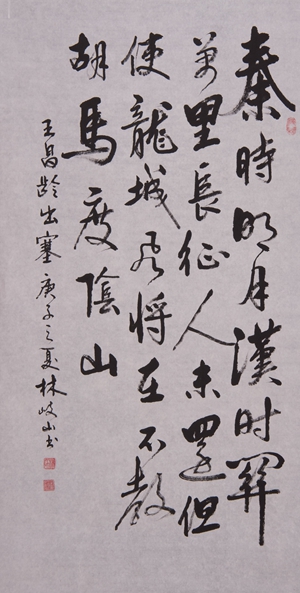 秦時明月漢时關
萬里長征人未還但
使龍城飞將在不教
胡馬度陰山
王昌龄出塞庚子之夏林岐山书